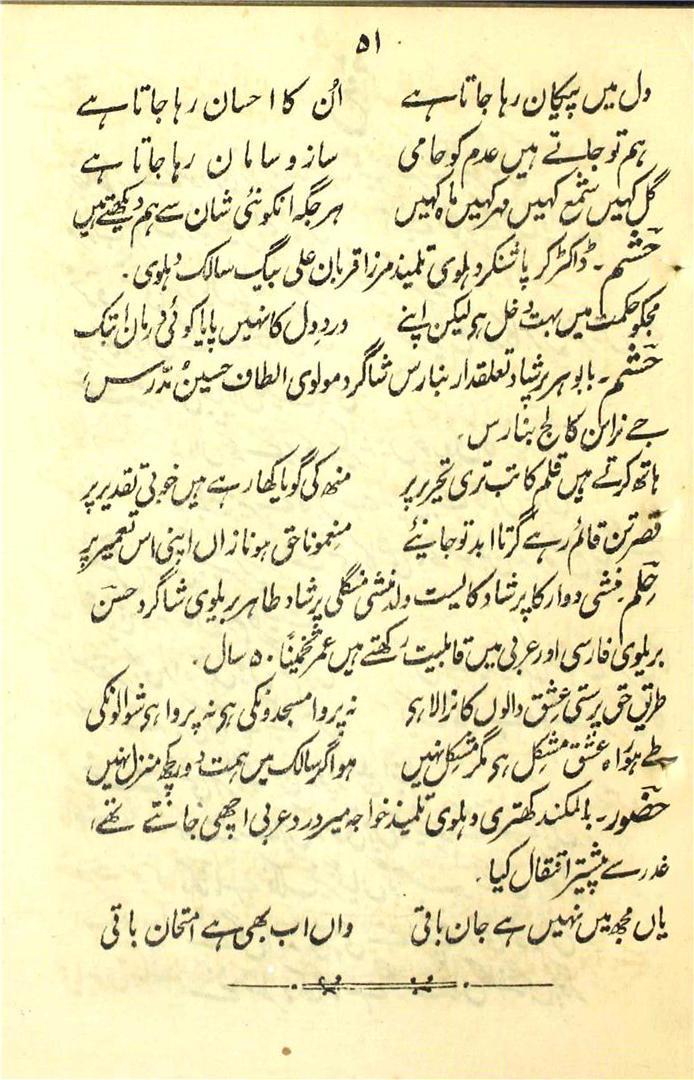 ۵۱
دل میں پیکان رہا جاتا ہے اُن کا احسان رہا جاتا ہے
ہم تو جاتے ہیں عدم کو حامی ساز و سامان رہا جاتا ہے
گل کہیں شمع کہیں مہر کہیں ماہ کہیں ہر جگہ انکو نئی شان سے ہم دیکھتے ہیں
حشم۔ ڈاکٹر کرپا شنکر دہلوی تلمیذ مرزا قربان علی بیگ سالک دہلوی۔
مجکو حکمت میں بہت دخل ہی لیکن اپنے درد دل کا نہیں پایا کوئی درمان ابتک
حشم۔ بابو ہر پرشاد تعلقدار بنارس شاگرد مولوی الطاف حسین مدّرس
جے نراین کالج بنارس۔
ہاتھ کرتے ہیں قلم کاتب تری تحریر پر منھ کی گویا کھا رہے ہیں خوبی تقدیر پر
قصر تن قائم رہے گر تا ابد تو جانیئے منعمو ناحق ہو نازاں اپنی اس تعمیر پر
حلم۔ منشی دوارکا پرشاد کایست ولد منشی منگلی پرشاد طاہر بریلوی شاگرد حسن
بریلوی فارسی اور عربی میں قابلیت رکھتے ہیں عمر تخمیناً ۵۰ سال۔
طریق حق پرستی عشق والوں کا نرالا ہی نہ پروا مسجدونکی ہی نہ پروا ہی شوالونکی
طے ہو راہ عشق مشکل ہی مگر مشکل نہیں ہو اگر سالک میں ہمت دور کچھ منزل نہیں
حضور۔ بالمکند کھتری دہلوی تلمیذ خواجہ میر درد عربی اچھی جانتے تھے،
غدر سے پیشتر انتقال کیا۔
یاں مجھ میں نہیں ہے جان باقی واں اب بھی ہے امتحان باقی